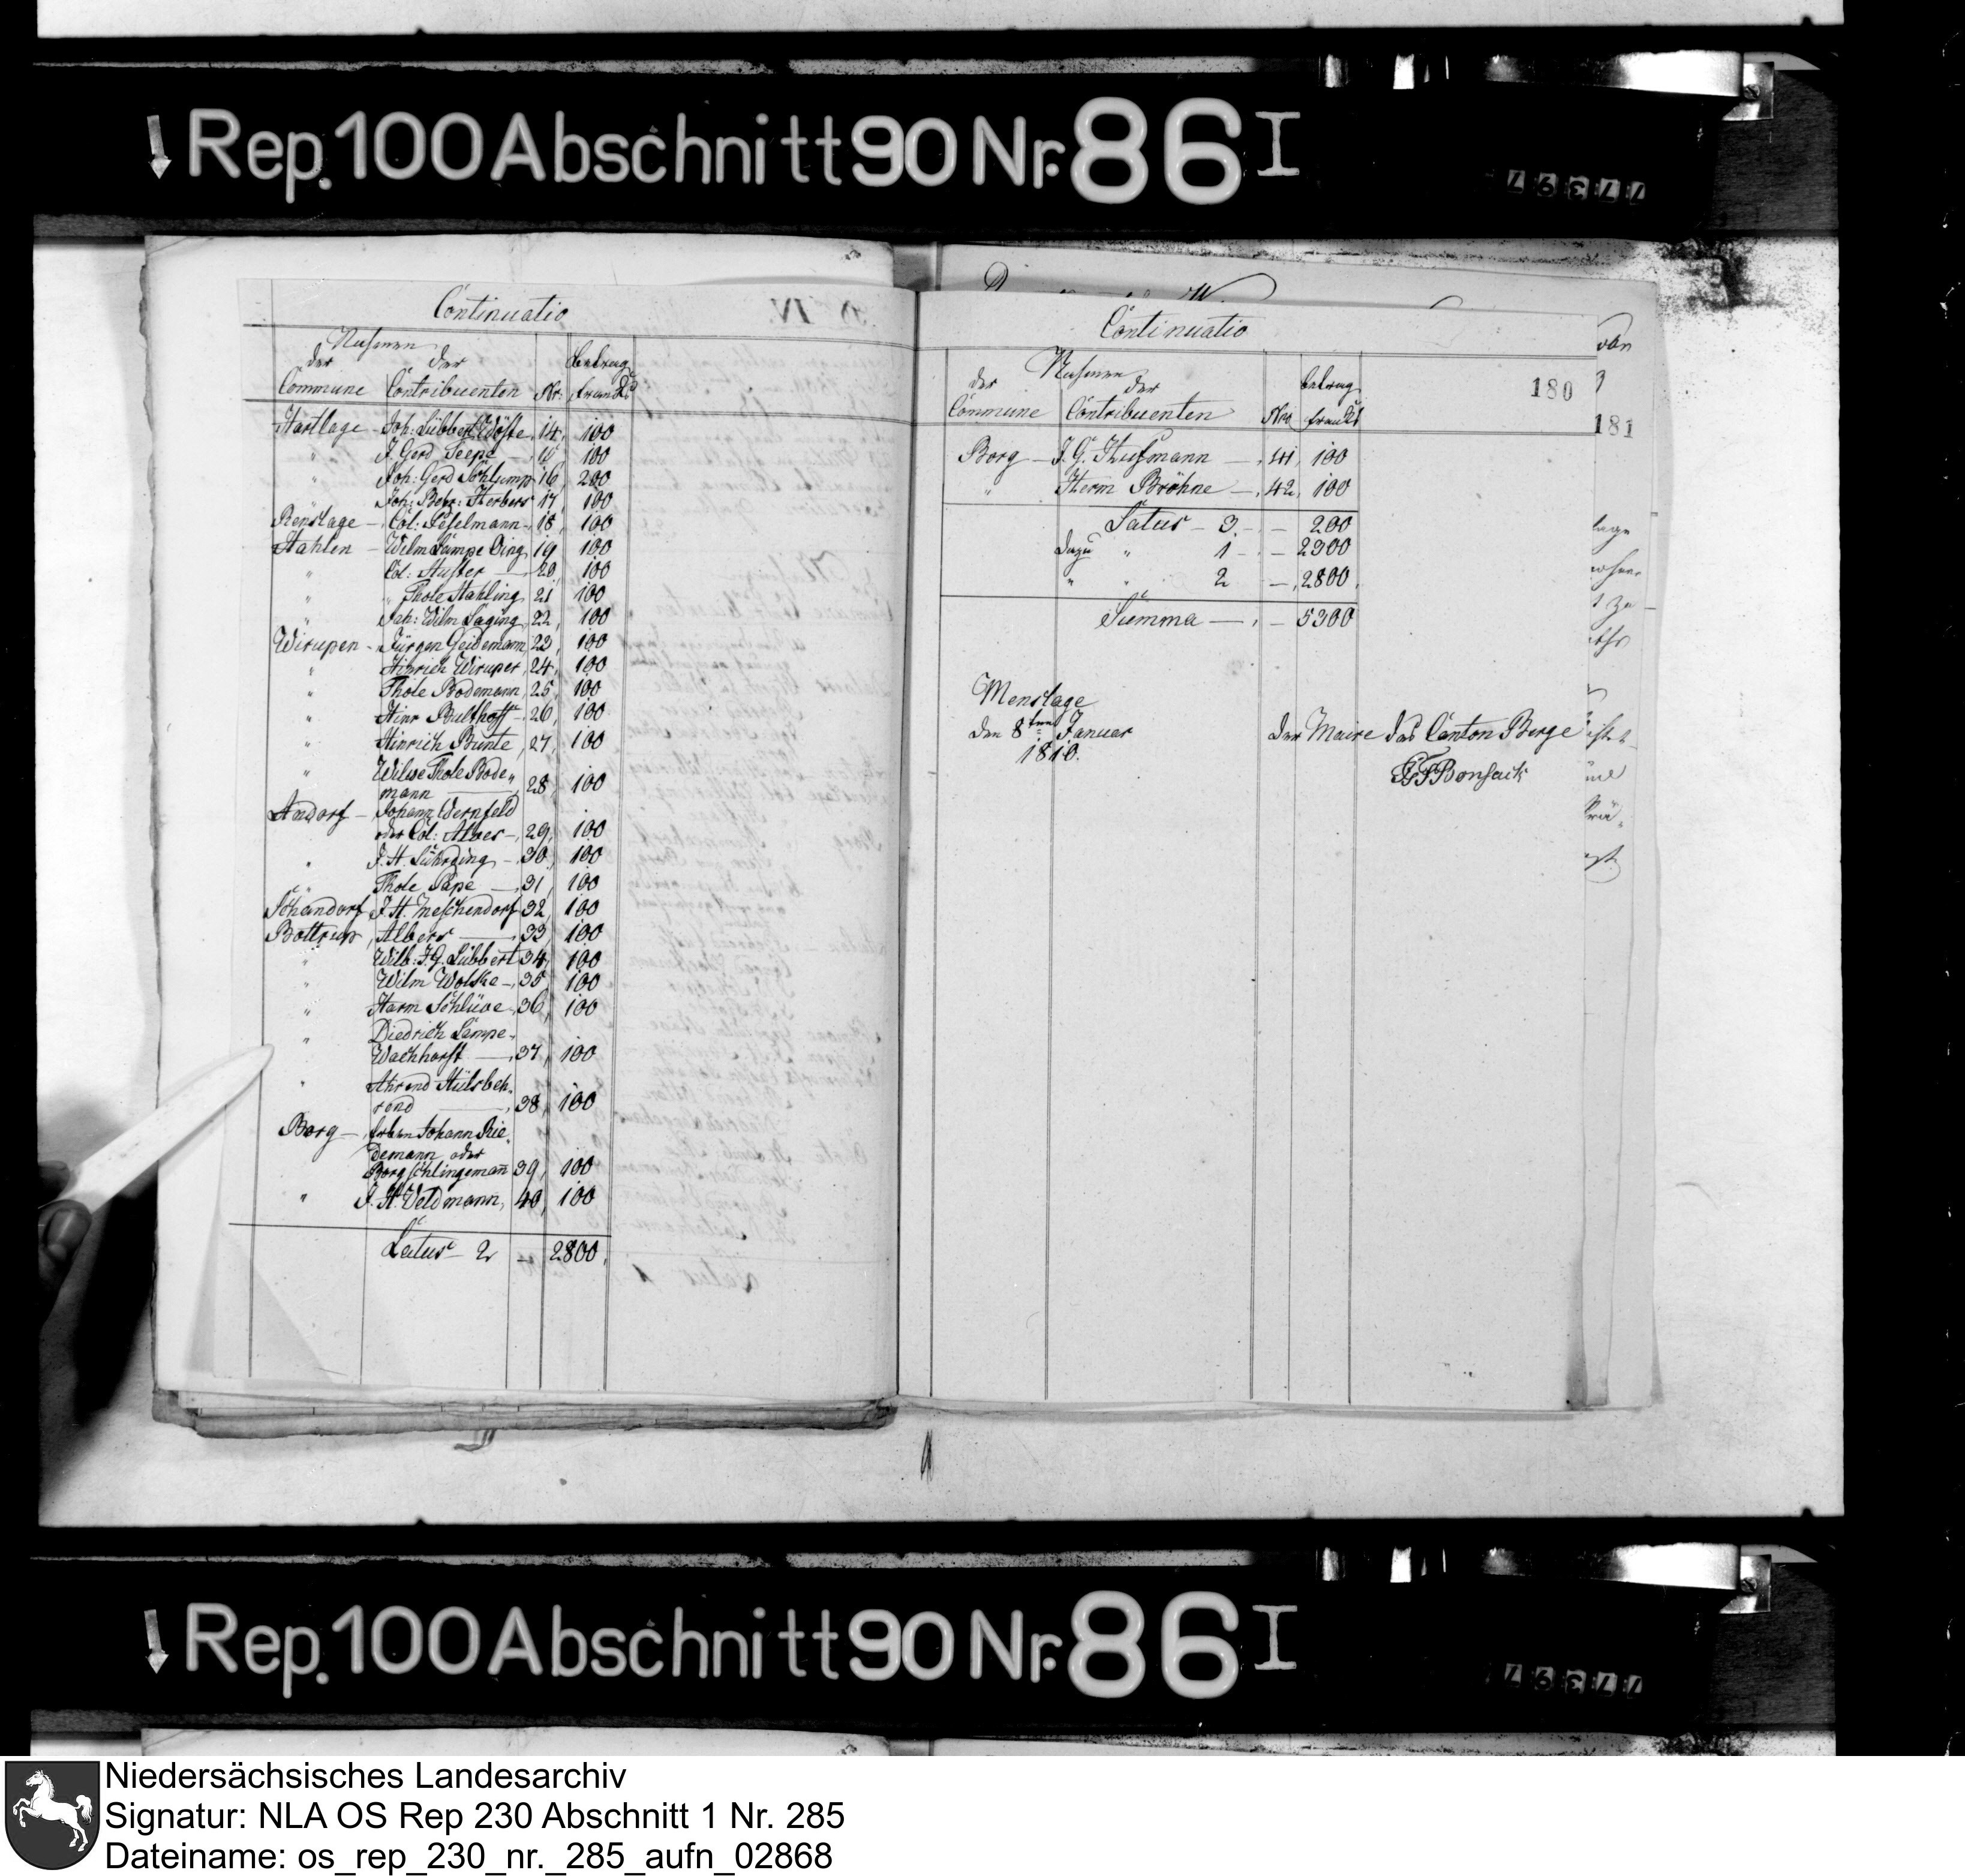 Rep. 100 Abschnitt 90 Nr. 86 I
77397
Continuatio
Nahmen
der der Betrag
Commune Contribuenten Nr. francs
Hartlage - Joh: Lübbert Wöste 14, 100
" J. Gerd Seepe - 15, 100
" Joh: Gerd Schlump 16, 200
" Joh: Behr: Herbers 17, 100
Renslage - Col: Peselmann - 18, 100
Hahlen - Wilm Lampe Ding 19 100
" Col: Huster - 20, 100
" " Thole Hahling 21 100
" Joh: Wilm Saging 22, 100
Wirupen - Jürgen Geidemann 23, 100
" Hinrich Wiruper, 24, 100
" Thole Bodemann, 25, 100
" Hinr Bulthoff - 26, 100
" Hinrich Bunte, 27, 100
" Witwe Thole Bode„
mann - 28, 100
Andorf - Johann Wernfeld
oder Col: Alves -, 29, 100
" J. H. Lührding - 30, 100
" Thole Pape - 31, 100
Schandorf, J. H. Meschendorf 32, 100
Bottrup, Albers - 33, 100
" Wilb: J. G. Lübbert 34, 100
" Wilm Wolke - 35, 100
" Harm Schlüve, 36, 100
" Diedrich Lampe-
Wachhorst - 37, 100
" Ahrend Hülsbeh-
rend - 38, 100
Borg - Erben Johann Rie-
demann oder
Borgschlingemann 39, 100
" J. H. Veldmann, 40, 100
Latus 2 - 2800,
Continuatio
180
181
Nahmen
der der Betrag
Commune Contribuenten Nro francs
Borg - J. G. Husmann - 41, 100
" Herm Bröhne - 42, 100
Latus - 3 - - 200
dazu " 1 - - 2300
" " 2 - 2800,
Summa - - 5300
Menslage
den 8ten Januar
1810.
Der Maire des Canton Berge
Bonsack
Rep. 100 Abschnitt 90 Nr. 86 I
77397
Niedersächsisches Landesarchiv
Signatur: NLA OS Rep 230 Abschnitt 1 Nr. 285
Dateiname: os_rep_230_nr._285_aufn_02868